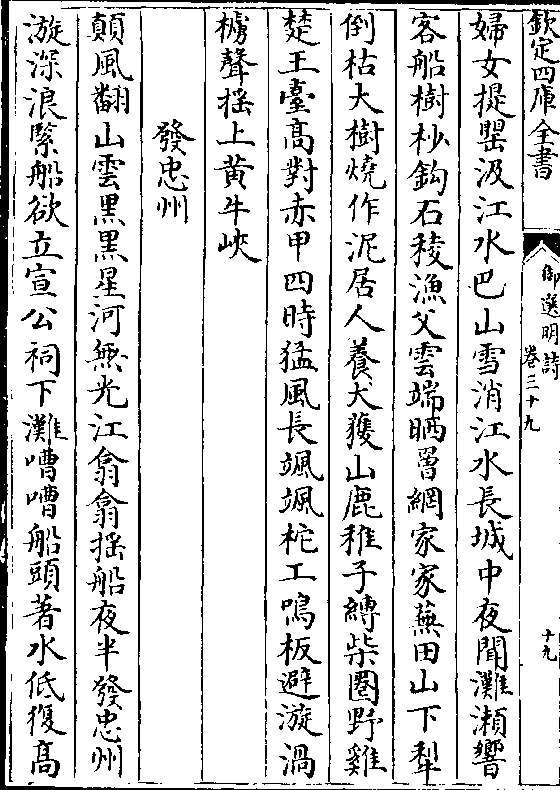 欽定四庫全書
御選明詩
卷三十九
十九
婦女提甖汲江水巴山雪消江水長城中夜聞灘瀬響
客船樹杪鈎石稜漁父雲端晒罾網家家蕪田山下犁
倒枯大樹燒作泥居人養犬獲山鹿稚子縛柴圏野雞
楚王臺高對赤甲四時猛風長颯颯柁工鳴板避漩渦
櫓聲揺上黄牛峽
發忠州
顛風翻山雲黒黒星河無光江翕翕揺船夜半發忠州
漩深浪緊船欲立宣公祠下灘嘈嘈船頭著水低復高